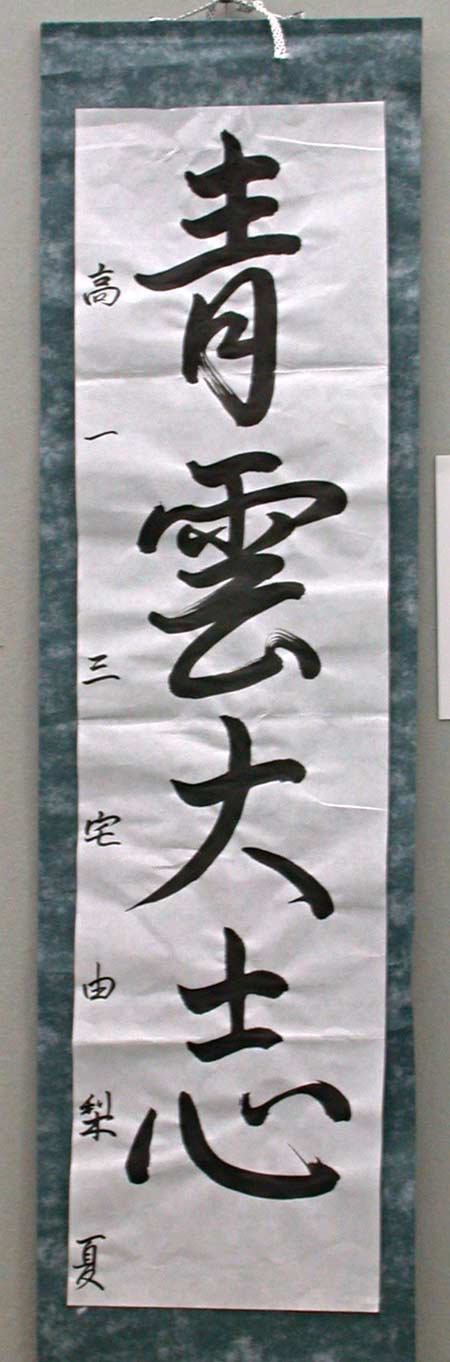 青雲大志
高一 三宅由梨夏